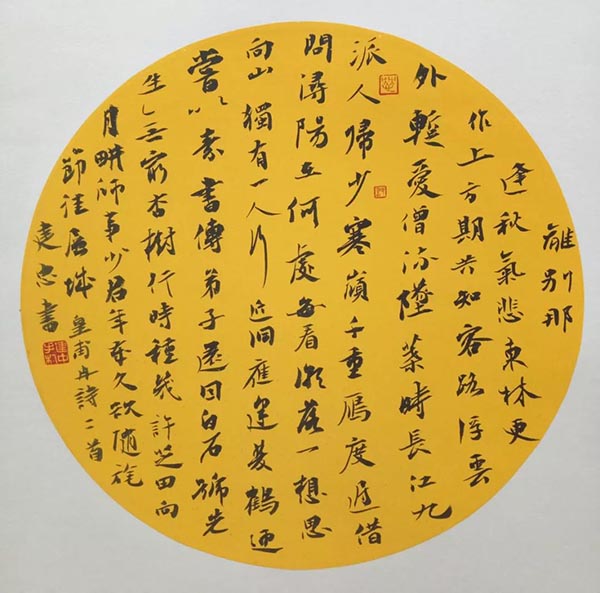 離別那
逢秋氣悲東林更
作上方期共知客路浮雲
外蹔愛僧房墜葉時長江九
派人歸少寒嶺千重鴈度遲借
問潯陽在何處每看潮落一想思
向山獨有一人行近洞應逢雙鶴迎
嘗以素書傳弟子還因白石號先
生無窮杏樹行時種幾許芝田向
月畊師事少君年歲久欲隨旄
節往層城 皇甫冉詩二首
建忠書